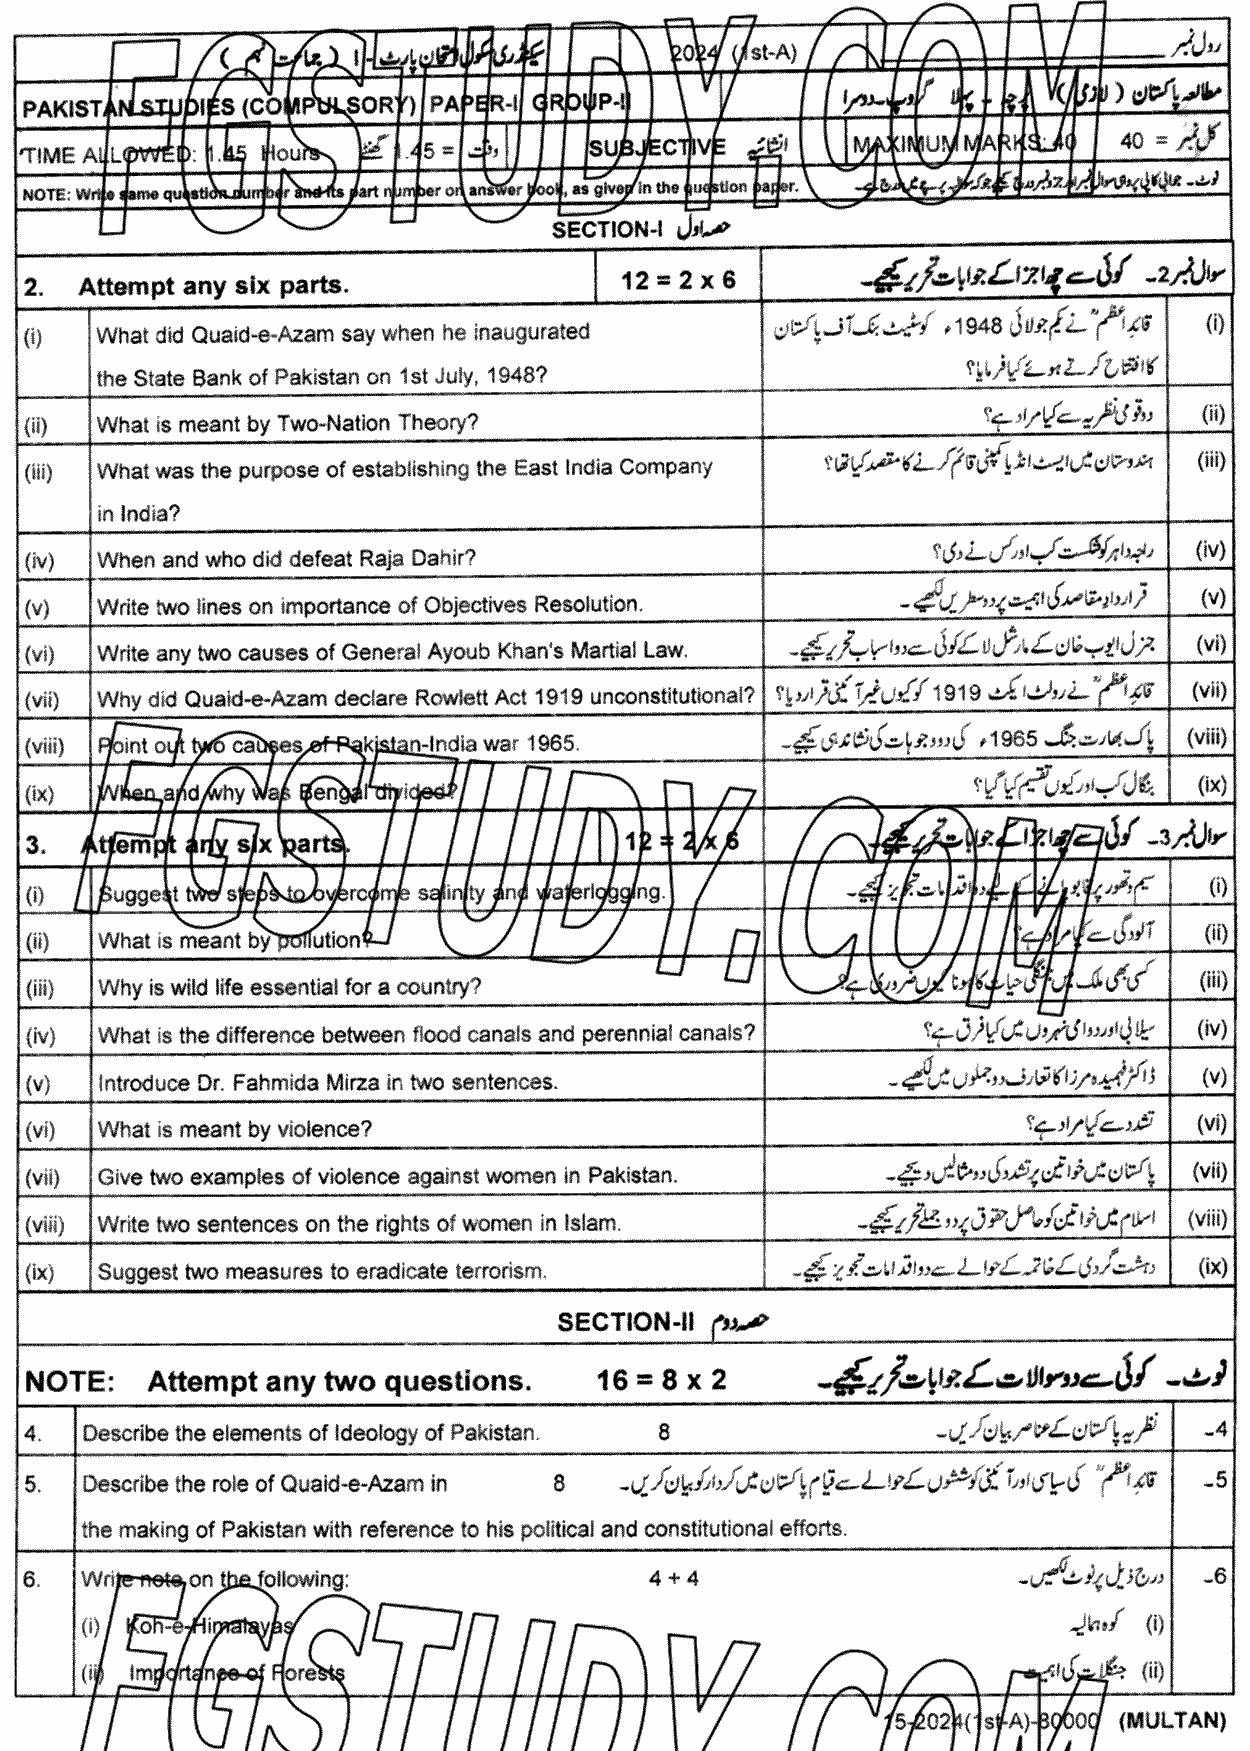 سیکنڈری سکول امتحان پارٹ - I ( جماعت نہم ) 2024 (1st-A) رول نمبر
PAKISTAN STUDIES (COMPULSORY) PAPER-I GROUP-II مطالعہ پاکستان ( لازمی ) پرچہ - پہلا گروپ - دوسرا
TIME ALLOWED: 1.45 Hours وقت = 1.45 گھنٹے SUBJECTIVE انشائیہ MAXIMUM MARKS: 40 کل نمبر = 40
NOTE: Write same question number and its part number on answer book, as given in the question paper. نوٹ۔ جوابی کاپی پر وہی سوال نمبر اور جزو نمبر درج کیجیے جو کہ سوالیہ پرچے میں درج ہے۔
SECTION-I حصہ اول
2. Attempt any six parts. 12 = 2 x 6 سوال نمبر 2۔ کوئی سے چھ اجزا کے جوابات تحریر کیجیے۔
(i) What did Quaid-e-Azam say when he inaugurated قائداعظمؒ نے یکم جولائی 1948ء کو سٹیٹ بنک آف پاکستان (i)
the State Bank of Pakistan on 1st July, 1948? کا افتتاح کرتے ہوئے کیا فرمایا؟
(ii) What is meant by Two-Nation Theory? دو قومی نظریہ سے کیا مراد ہے؟ (ii)
(iii) What was the purpose of establishing the East India Company ہندوستان میں ایسٹ انڈیا کمپنی قائم کرنے کا مقصد کیا تھا؟ (iii)
in India?
(iv) When and who did defeat Raja Dahir? راجہ داہر کو شکست کب اور کس نے دی؟ (iv)
(v) Write two lines on importance of Objectives Resolution. قرارداد مقاصد کی اہمیت پر دو سطریں لکھیے۔ (v)
(vi) Write any two causes of General Ayoub Khan's Martial Law. جنرل ایوب خان کے مارشل لا کے کوئی سے دو اسباب تحریر کیجیے۔ (vi)
(vii) Why did Quaid-e-Azam declare Rowlett Act 1919 unconstitutional? قائداعظمؒ نے رولٹ ایکٹ 1919 کو کیوں غیر آئینی قرار دیا؟ (vii)
(viii) Point out two causes of Pakistan-India war 1965. پاک بھارت جنگ 1965ء کی دو وجوہات کی نشاندہی کیجیے۔ (viii)
(ix) When and why was Bengal divided? بنگال کب اور کیوں تقسیم کیا گیا؟ (ix)
3. Attempt any six parts. 12 = 2 x 6 سوال نمبر 3۔ کوئی سے چھ اجزا کے جوابات تحریر کیجیے۔
(i) Suggest two steps to overcome salinity and waterlogging. سیم و تھور پر قابو پانے کے لیے دو اقدامات تجویز کیجیے۔ (i)
(ii) What is meant by pollution? آلودگی سے کیا مراد ہے؟ (ii)
(iii) Why is wild life essential for a country? کسی بھی ملک میں جنگلی حیات کا ہونا کیوں ضروری ہے؟ (iii)
(iv) What is the difference between flood canals and perennial canals? سیلابی اور دوامی نہروں میں کیا فرق ہے؟ (iv)
(v) Introduce Dr. Fahmida Mirza in two sentences. ڈاکٹر فہمیدہ مرزا کا تعارف دو جملوں میں لکھیے۔ (v)
(vi) What is meant by violence? تشدد سے کیا مراد ہے؟ (vi)
(vii) Give two examples of violence against women in Pakistan. پاکستان میں خواتین پر تشدد کی دو مثالیں دیجیے۔ (vii)
(viii) Write two sentences on the rights of women in Islam. اسلام میں خواتین کو حاصل حقوق پر دو جملے تحریر کیجیے۔ (viii)
(ix) Suggest two measures to eradicate terrorism. دہشت گردی کے خاتمہ کے حوالے سے دو اقدامات تجویز کیجیے۔ (ix)
SECTION-II حصہ دوم
NOTE: Attempt any two questions. 16 = 8 x 2 نوٹ۔ کوئی سے دو سوالات کے جوابات تحریر کیجیے۔
4. Describe the elements of Ideology of Pakistan. 8 نظریہ پاکستان کے عناصر بیان کریں۔ 4-
5. Describe the role of Quaid-e-Azam in 8 قائداعظمؒ کی سیاسی اور آئینی کوششوں کے حوالے سے قیام پاکستان میں کردار کو بیان کریں۔ 5-
the making of Pakistan with reference to his political and constitutional efforts.
6. Write note on the following: 4 + 4 درج ذیل پر نوٹ لکھیں۔ 6-
(i) Koh-e-Himalayas کوہ ہمالیہ (i)
(ii) Importance of Forests جنگلات کی اہمیت (ii)
15-2024(1st-A)-80000 (MULTAN)
FGSTUDY.COM
FGSTUDY.COM
FGSTUDY.COM